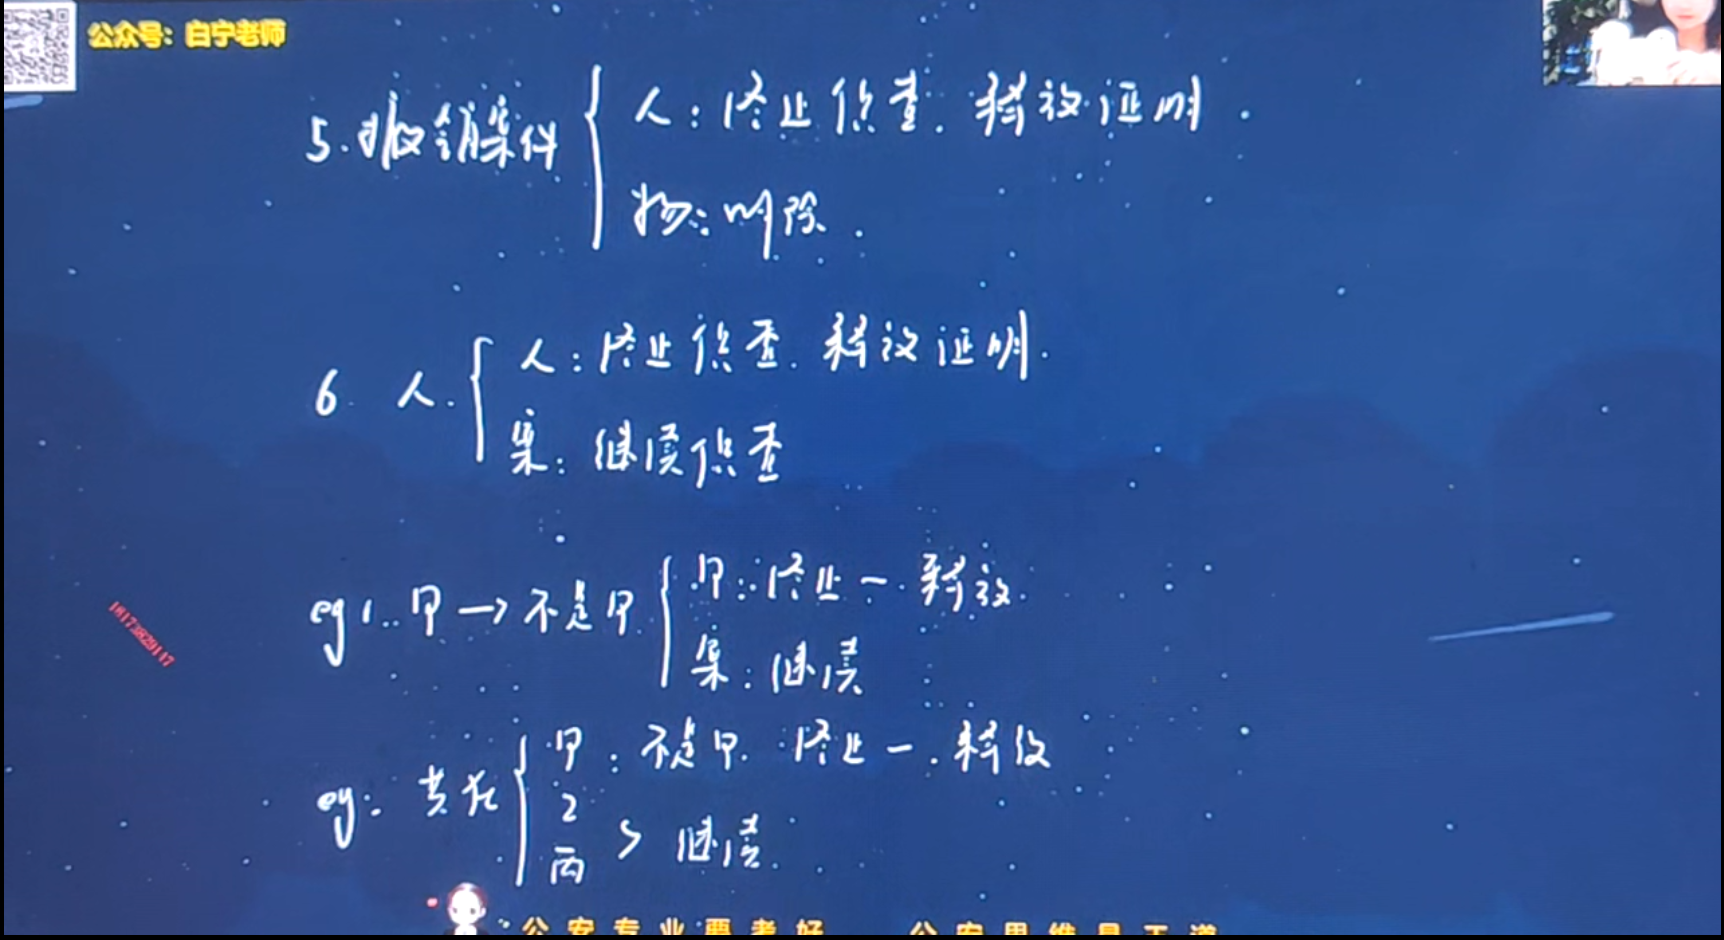 公众号：白宁老师
5.撤销案件
人：终止侦查.释放证明.
物：解除.
6.人.
人：终止侦查.释放证明.
案：继续侦查
eg1.甲→不是甲
甲：终止一.释放.
案：继续
eg：共犯
甲：不是甲.终止一.释放
乙
丙 > 继续.
18173829117
公安专业要考好 公安思维是王道